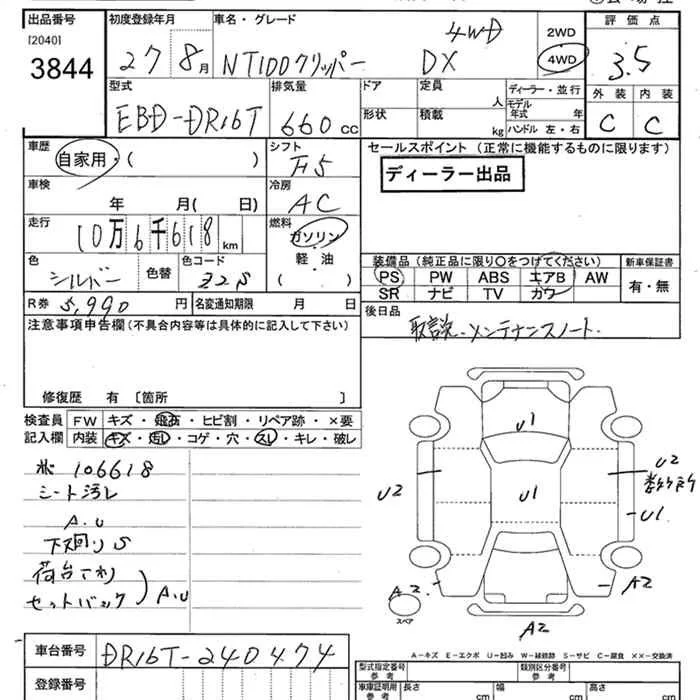 出品番号 初度登録年月 車名・グレード 2WD 評価点
[2040] 3844 27 8月 NT100クリッパー DX 4WD 4WD 3.5
型式 排気量 ドア 定員 人 ディーラー・並行 外装 内装
EBD-DR16T 660cc 形状 積載 kg モデル年式 年 ハンドル 左・右 C C
車歴 シフト セールスポイント (正常に機能するものに限ります)
自家用・( ) F5 ディーラー出品
車検 年 月( 日) 冷房 AC
走行 10万6千618km 燃料 ガソリン 軽油 ( )
装備品 (純正品に限り○をつけてください) 新車保証書
色 シルバー 色替 色コード Z2S PS PW ABS エアB AW 有・無
SR ナビ TV カワ
R券 5,990円 名変通知期限 月 日 後日品
取説・メンテナンスノート
注意事項申告欄(不具合内容等は具体的に記入して下さい)
修復歴 有 [箇所 ]
検査員記入欄 FW キズ・飛石・ヒビ割・リペア跡・×要
内装 キズ・汚レ・コゲ・穴・スレ・キレ・破レ
106618
シート汚レ
A.U
下廻りS
荷台サビ
セットバック A.U
U1
U2 U1 U2
U1
A2 A2
スペア A2
A-キズ E-エクボ U-凹み W-補修跡 S-サビ C-腐食 ××-交換済
車台番号 DR16T-240474
登録番号
型式指定番号 参考 類別区分番号 参考
車庫証明用 参考 長さ cm 幅 cm 高さ cm